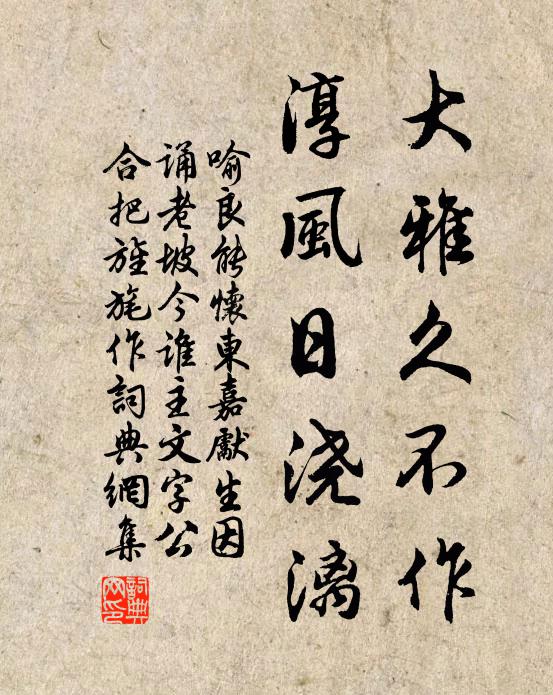 大雅久不作
淳風日浇漓
喻良能懷東嘉獻生因
誦老坡今誰主文字公
合把旌旄作詞典網集
詞典網印